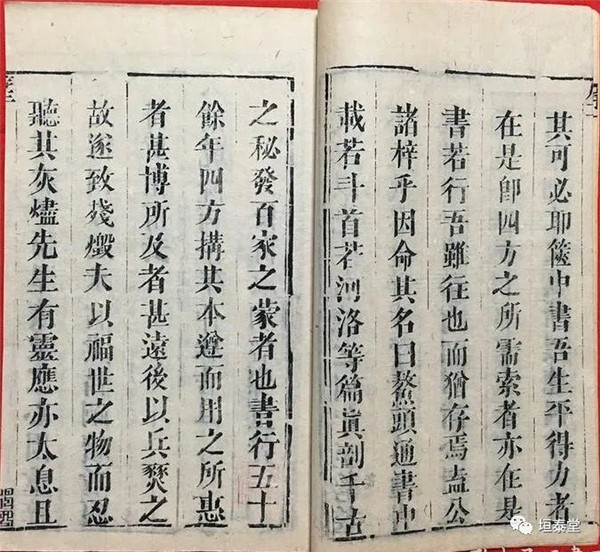 其可必耶篋中書吾生平得力者
在是卽四方之所需索者亦在是
書若行吾雖往也而猶存焉盍公
諸梓乎因命其名曰鰲頭通書中
載若斗首若河洛等篇眞剖千古
之秘發百家之蒙者也書行五十
餘年四方搆其本遵而用之所惠
者甚博所及者甚遠後以兵燹之
故遂致殘燬夫以福世之物而忍
聽其灰燼先生有靈應亦太息且
垣泰堂